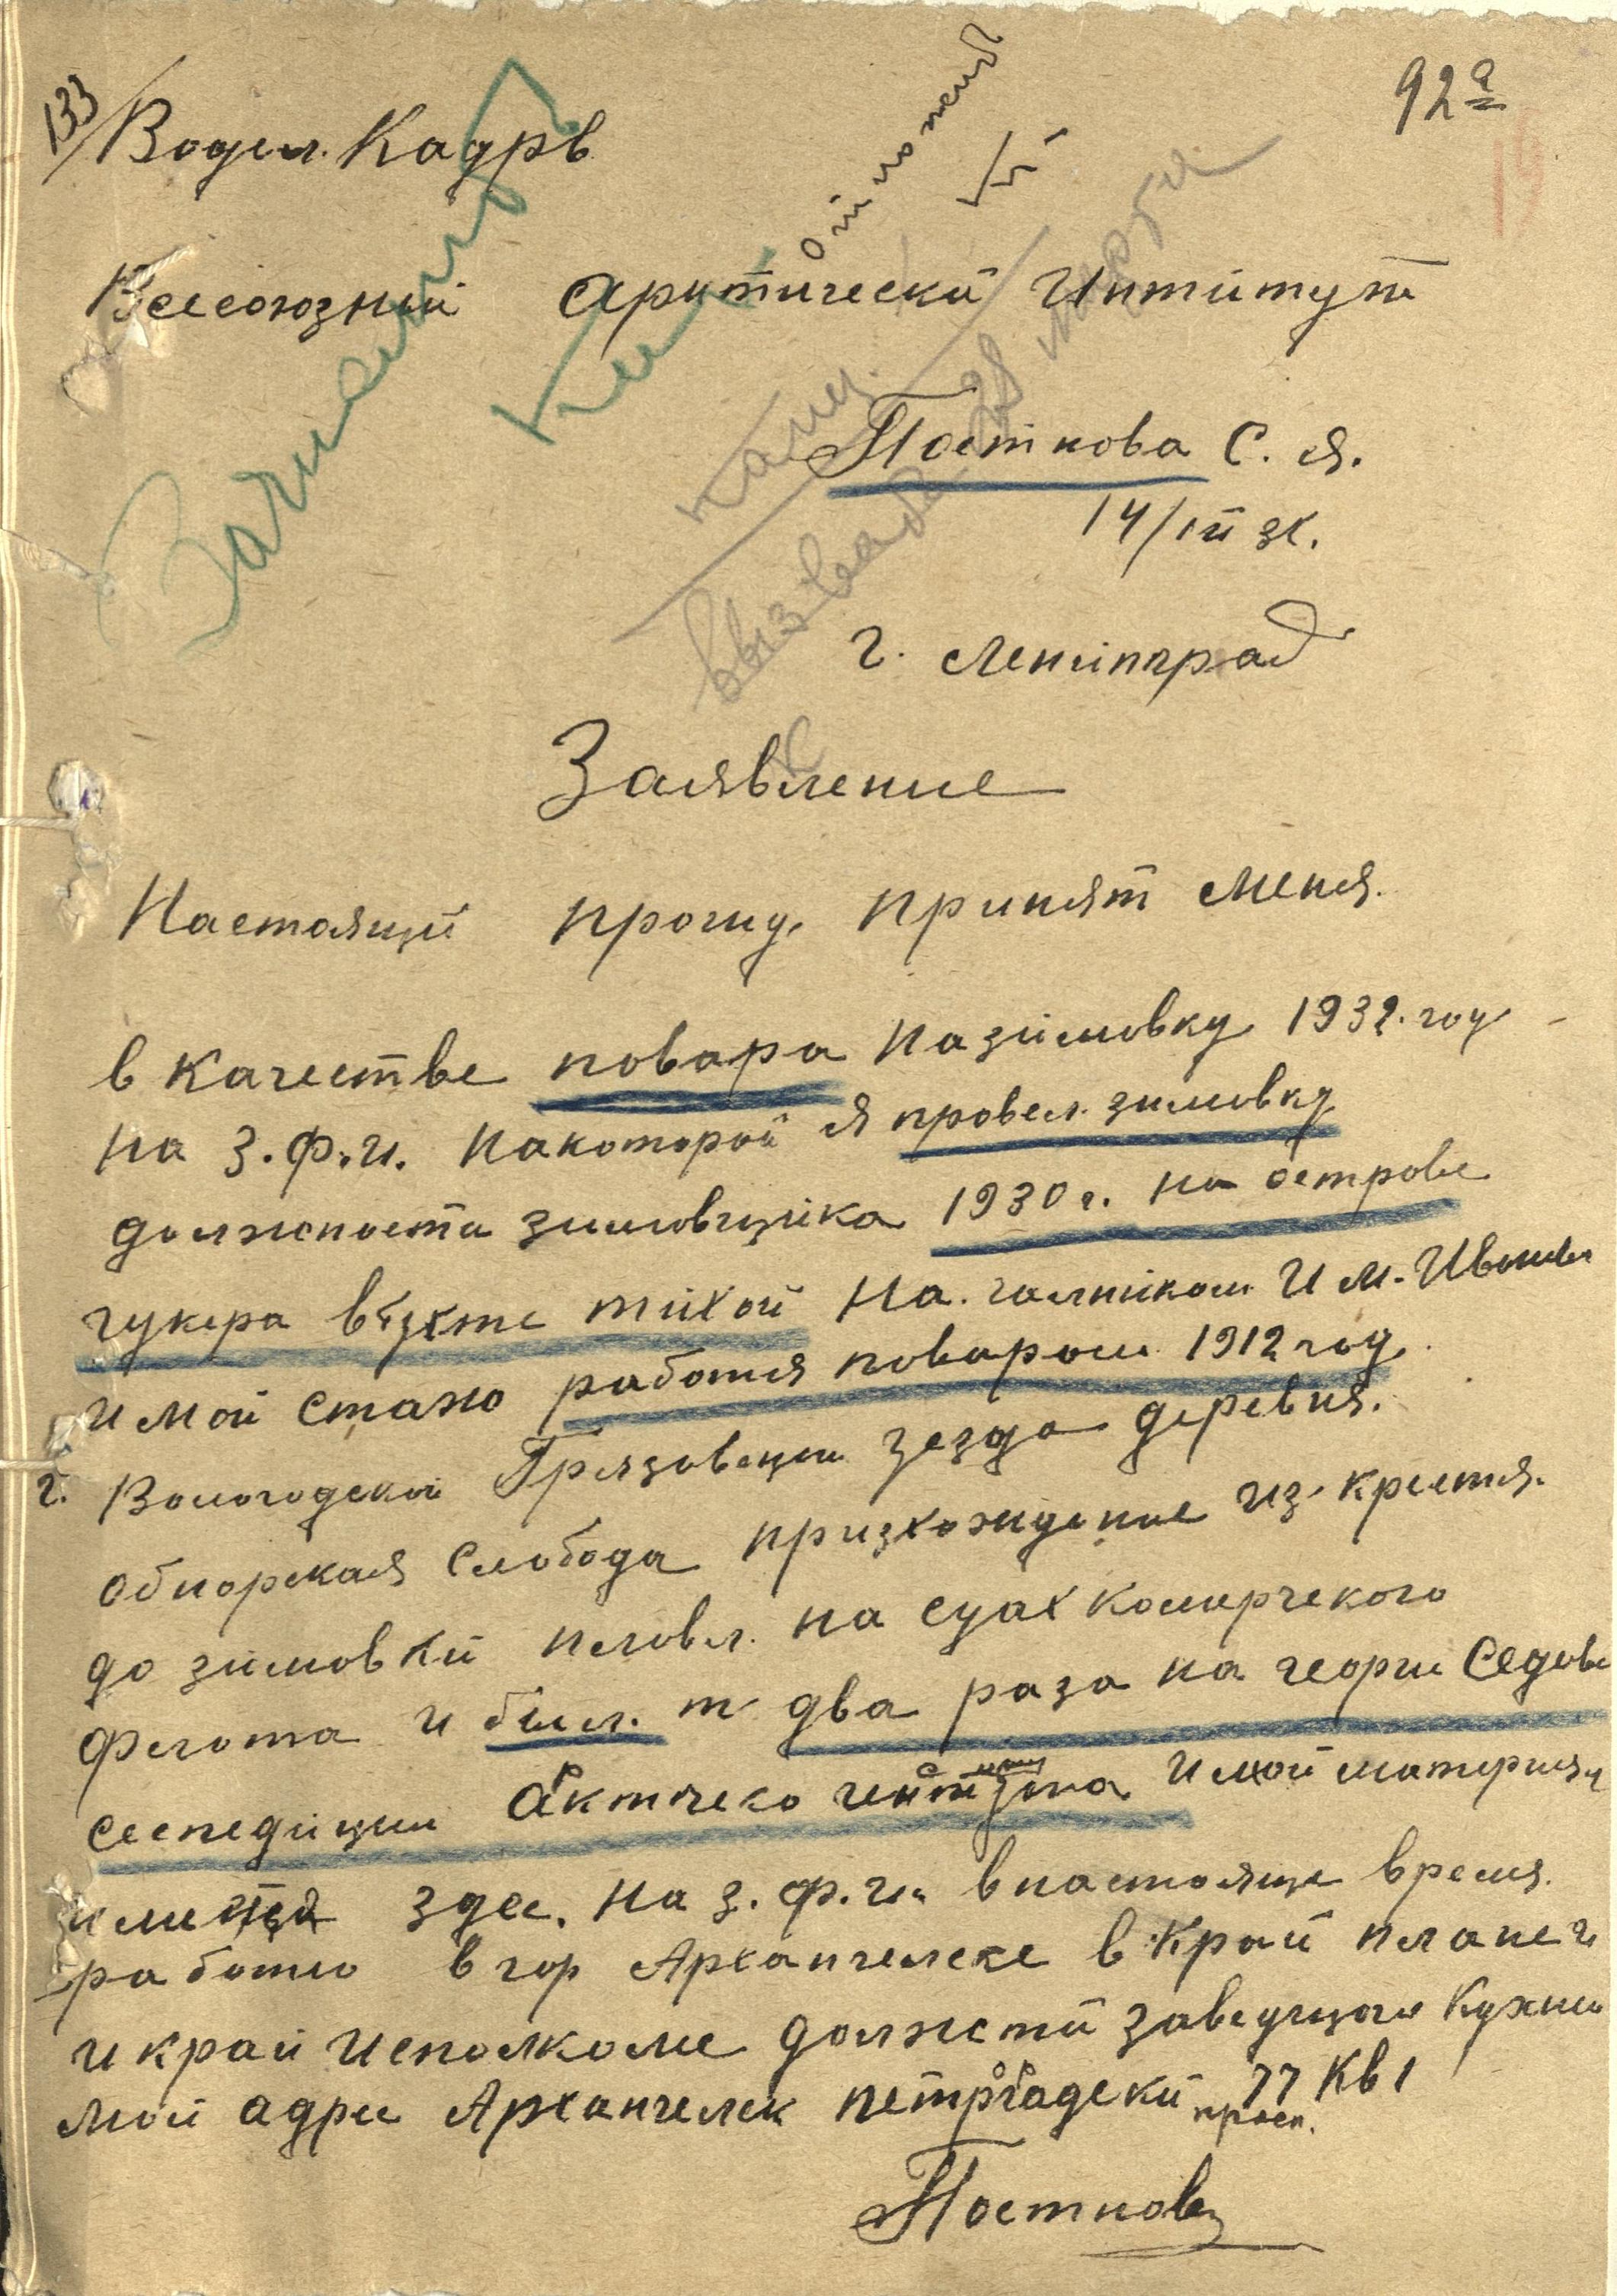 133/
92а
19
Водел. Кадрв
Зачислит
Всесоюзный Арктически Интитут
Канц.
Постнова С. Я.
14/III 32.
г. Ленинград
Заявление
Настоящий прошу принят меня.
в качестве повара назимовку 1932. году
на З.Ф.И. накоторой я провел зимовку
должности зимовщика 1930 г. на острове
гукера вбухте тихой На.
и мой стаж работы поваром 1912 год.
г. Вологодской Грязовецки уезда деревня.
обнорская слобода призхождение из крестя.
до зимовки плавл. на судах комерчекого
флота и был. т два раза на георги Седове
сеспедиции Арктическо института и мой материял
имется здес. на З.Ф.И. внастояще время.
работаю в гор Архангелске в Край плане и
и край исполкоме должсти заведущаго кухни
мой адрес Архангелск петроградски просп. 77 кв 1
Постнов